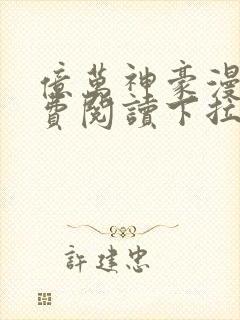 億萬神豪漫
費閱讀下拉
許建忠